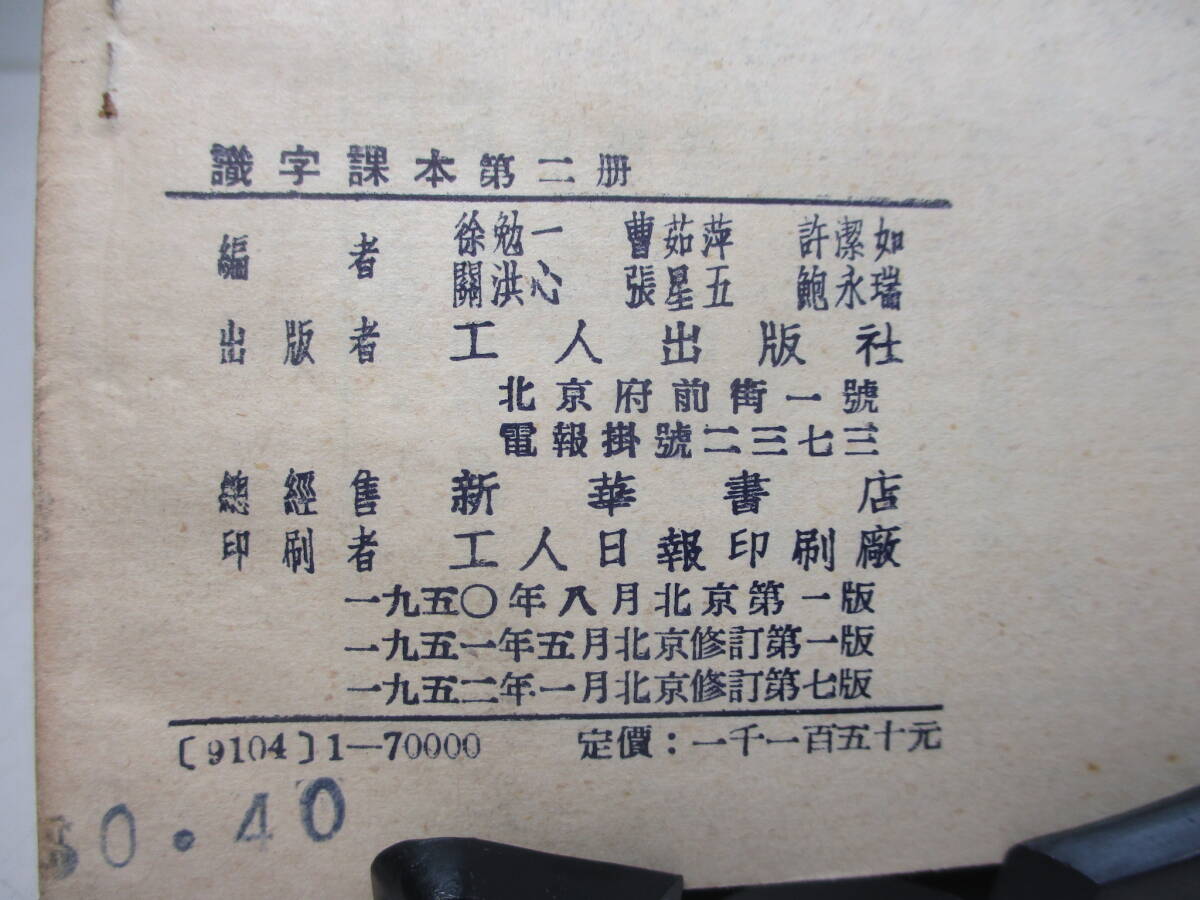 識字課本第二册
編者 徐勉一 曹茹萍 許潔如
關洪心 張星五 鮑永瑞
出版者 工人出版社
北京府前街一號
電報掛號二三七三
總經售 新華書店
印刷者 工人日報印刷廠
一九五〇年八月北京第一版
一九五一年五月北京修訂第一版
一九五二年一月北京修訂第七版
〔9104〕1—70000 定價：一千一百五十元
$0.40